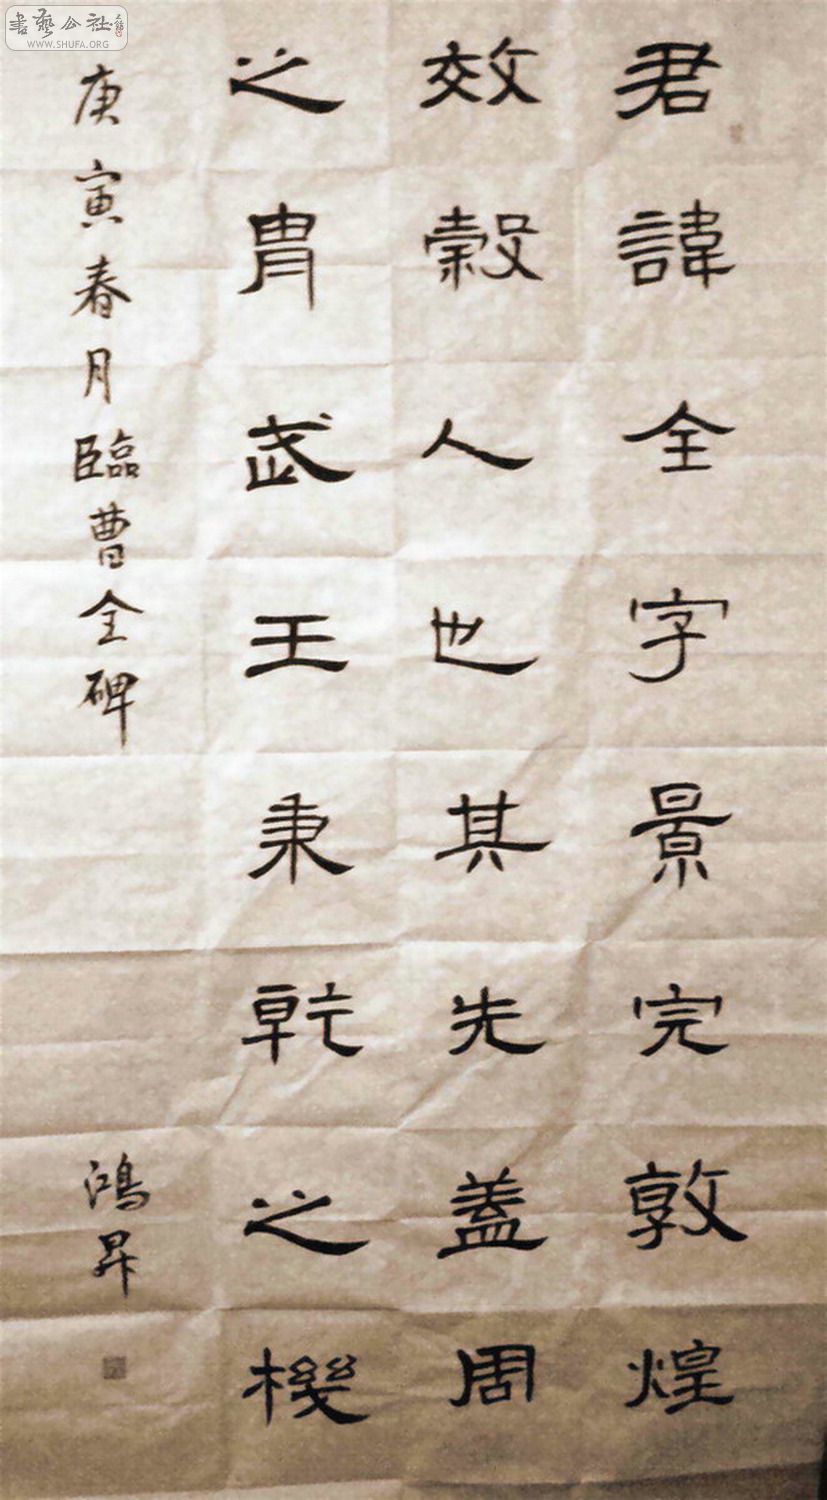 君諱全字景完敦煌
效穀人也其先蓋周
之胄武王秉乾之機
庚寅春月臨曹全碑
鴻昇
書藝公社
WWW.SHUFA.ORG